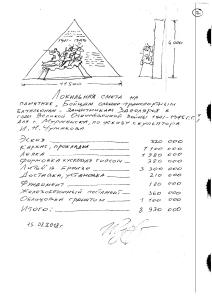 1941-1945
4000
11500
Локальная смета на
памятник, бойцам оленно-транспортных
батальонов, защитникам Заполярья в
годы Великой Отечественной войны 1941-1945 г.г.
для г. Мурманска, по эскизу скульптора
И. Н. Чумакова
Эскиз 320 000
Каркас, прокладка 1 100 000
Лепка 1 380 000
Формовка кусковая гипсом 320 000
Литьё в бронзе 3 300 000
Доставка, установка 210 000
Фундамент 180 000
Железобетонный постамент 360 000
Облицовка гранитом 1 100 000
Итого: 8 930 000